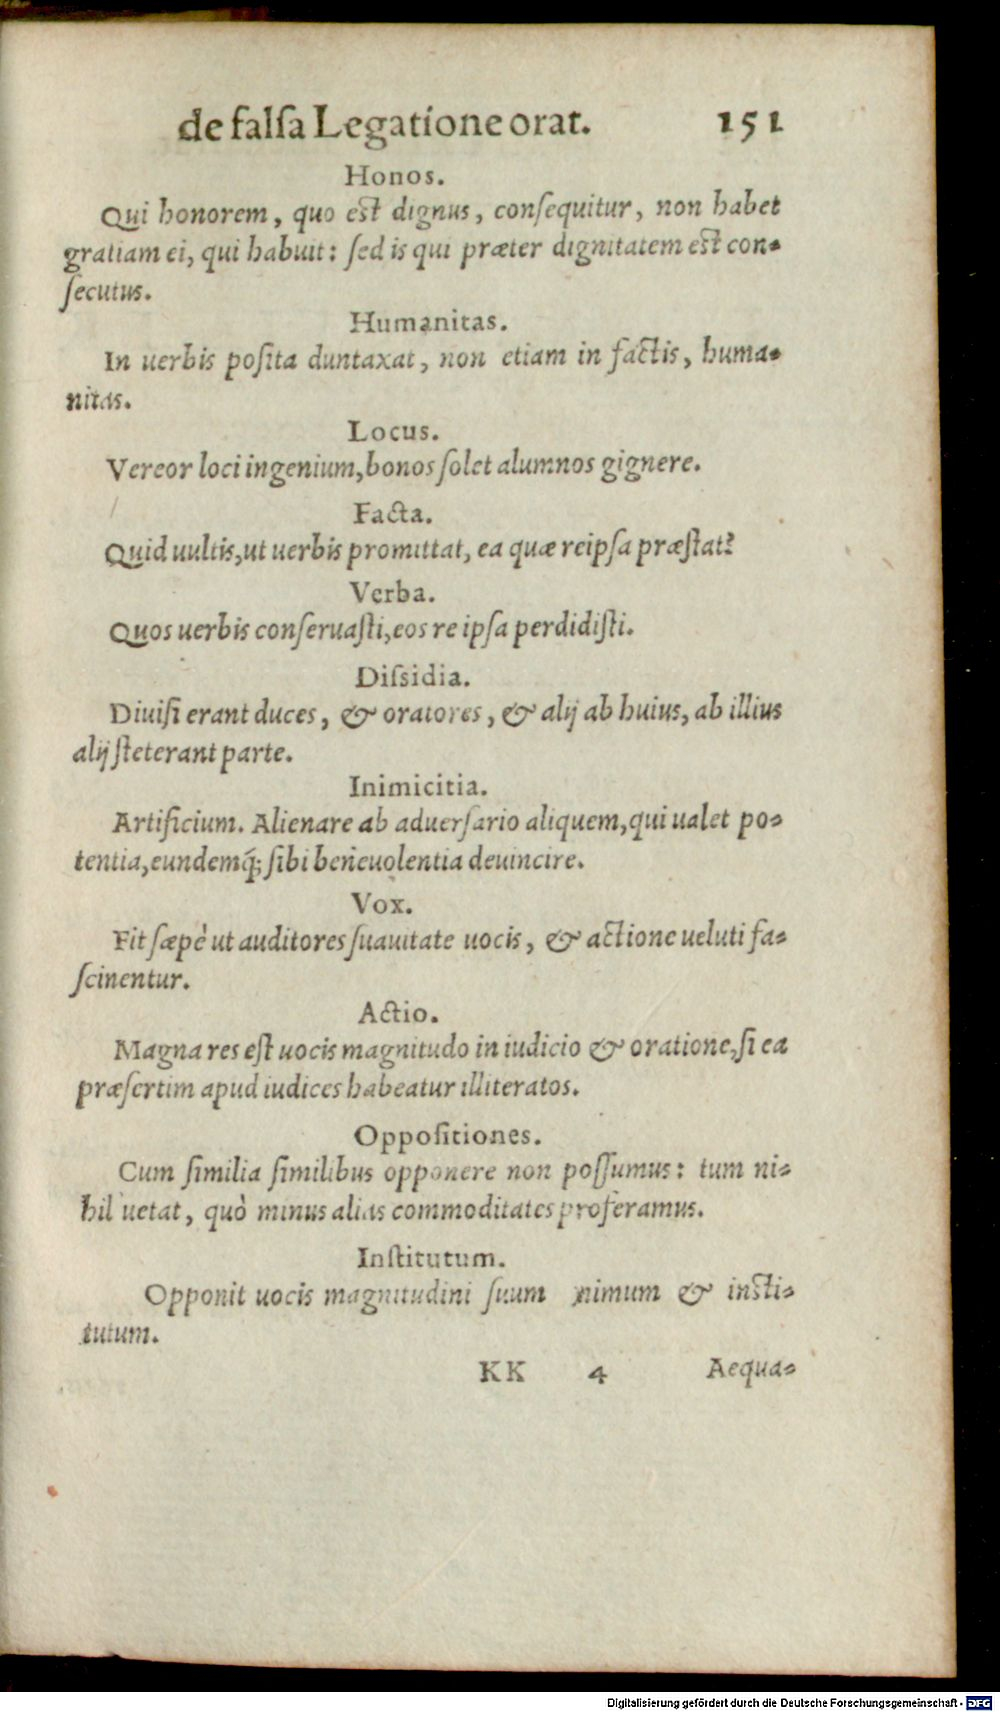 de falſa Legatione orat. 151
Honos.
Qui honorem, quo eſt dignus, conſequitur, non habet
gratiam ei, qui habuit: ſed is qui præter dignitatem eſt con-
ſecutus.
Humanitas.
In uerbis poſita duntaxat, non etiam in factis, huma-
nitas.
Locus.
Vereor loci ingenium, bonos ſolet alumnos gignere.
Facta.
Quid uultis, ut uerbis promittat, ea quæ reipſa præſtat?
Verba.
Quos uerbis conſeruaſti, eos re ipſa perdidiſti.
Diſsidia.
Diuiſi erant duces, & oratores, & alij ab huius, ab illius
alij ſteterant parte.
Inimicitia.
Artificium. Alienare ab aduerſario aliquem, qui ualet po-
tentia, eundemq́; ſibi beneuolentia deuincire.
Vox.
Fit ſæpè ut auditores ſuauitate uocis, & actione ueluti fa-
ſcinentur.
Actio.
Magna res eſt uocis magnitudo in iudicio & oratione, ſi ea
præſertim apud iudices habeatur illiteratos.
Oppoſitiones.
Cum ſimilia ſimilibus opponere non poſſumus: tum ni-
hil uetat, quò minus alias commoditates proferamus.
Inſtitutum.
Opponit uocis magnitudini ſuum nimum & inſti-
tutum.
KK 4 Aequa-
Digitalisierung gefördert durch die Deutsche Forschungsgemeinschaft - DFG